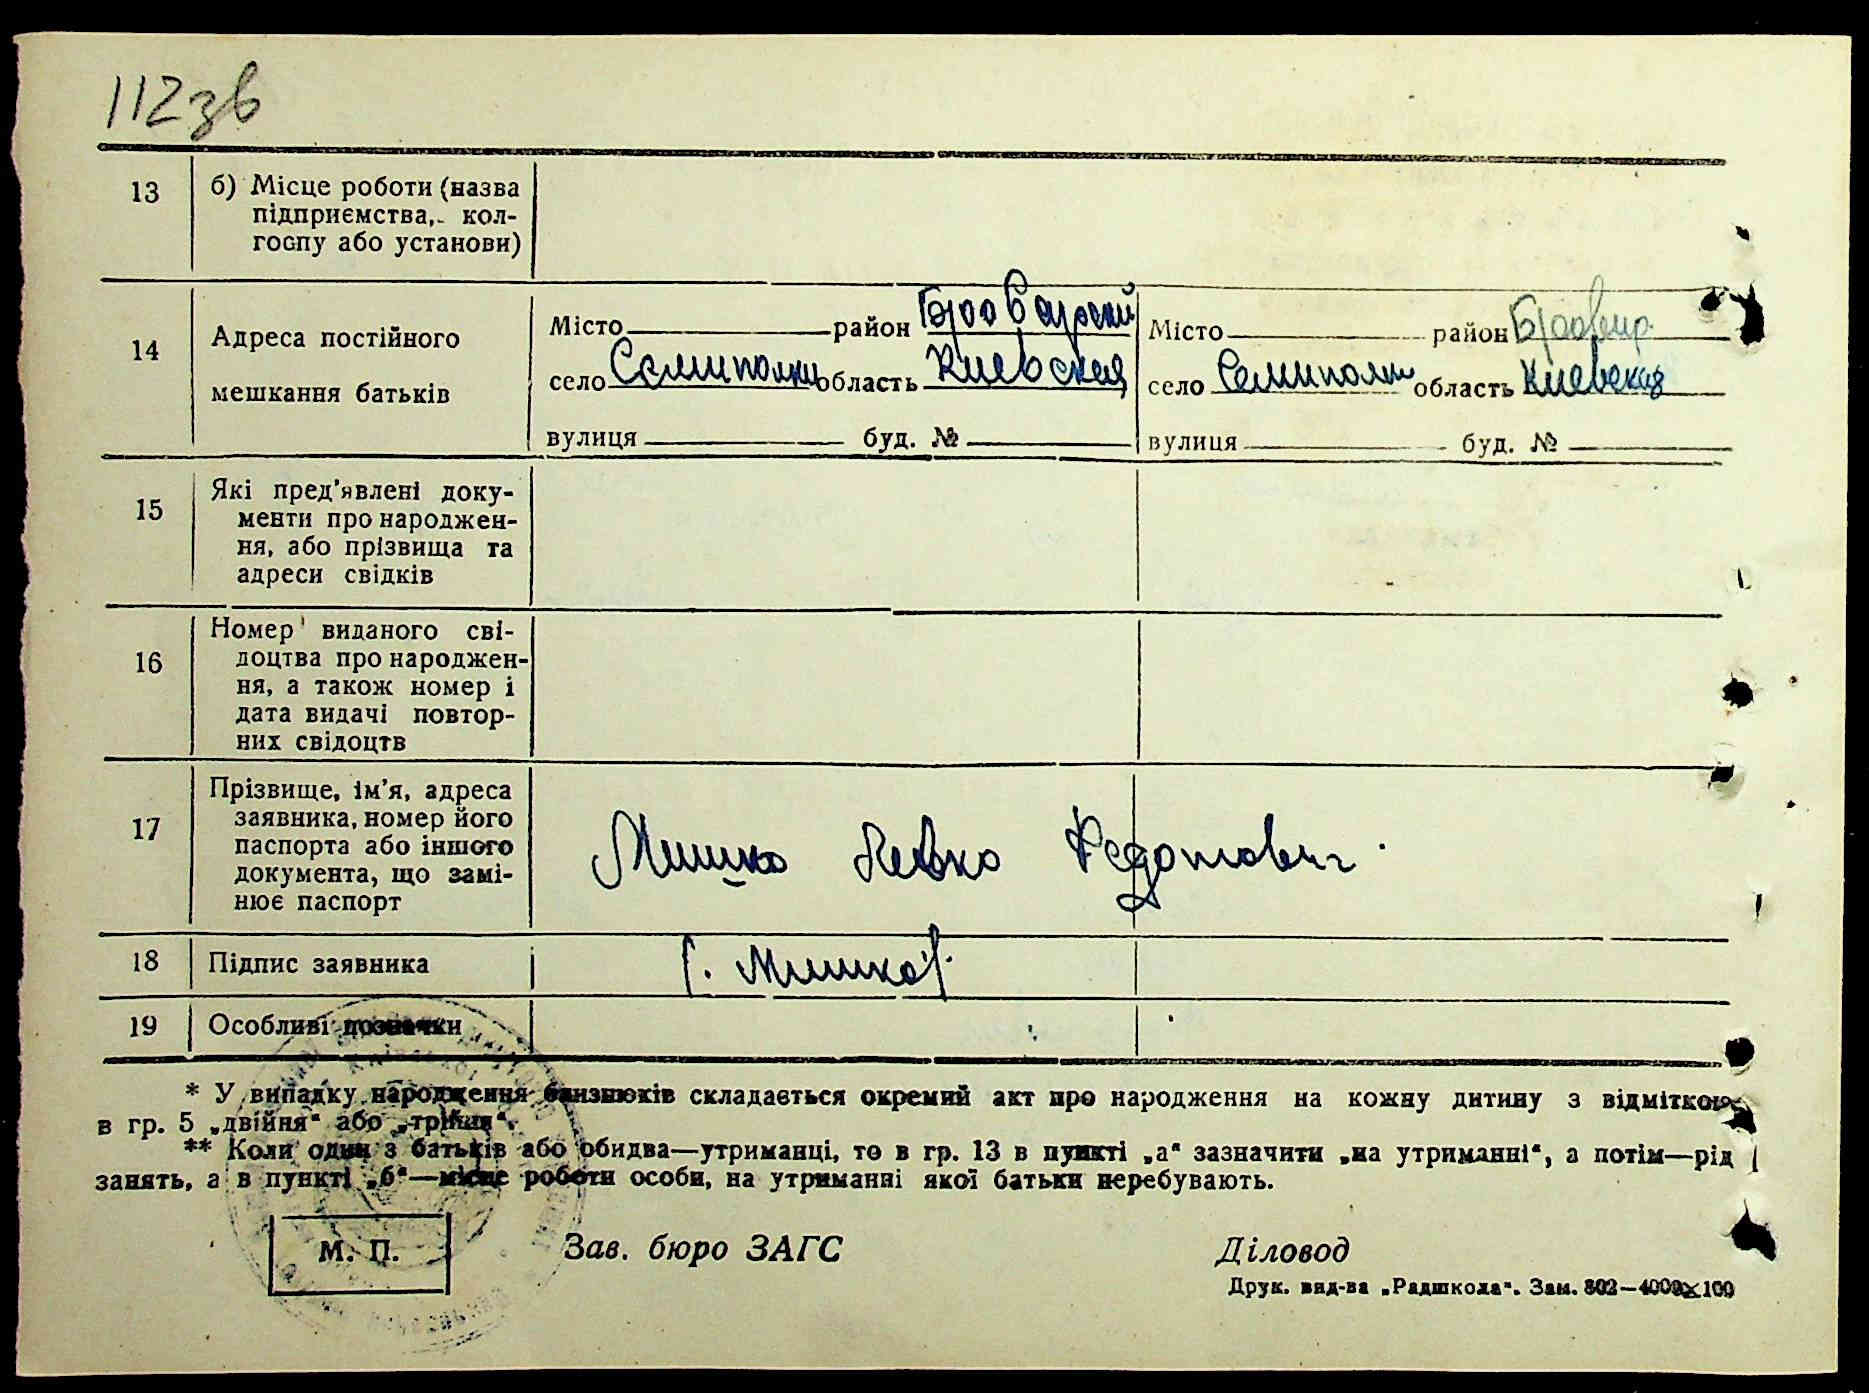 112зв
13 б) Місце роботи (назва
підприємства, кол-
госпу або установи)
14 Адреса постійного
мешкання батьків
Місто район Броварский Місто район Бровар.
село Семиполки область Киевская село Семиполки область Киевская
вулиця буд. № вулиця буд. №
15 Які пред'явлені доку-
менти про народжен-
ня, або прізвища та
адреси свідків
16 Номер виданого сві-
доцтва про народжен-
ня, а також номер і
дата видачі повтор-
них свідоцтв
17 Прізвище, ім'я, адреса
заявника, номер його
паспорта або іншого
документа, що замі-
нює паспорт
Мишко Левко Федотович
18 Підпис заявника
19 Особливі позначки
* У випадку народження близнюків складається окремий акт про народження на кожну дитину з відміткою
в гр. 5 „двійня“ або „трійня“.
** Коли один з батьків або обидва—утриманці, то в гр. 13 в пункті „а“ зазначити „на утриманні“, а потім—рід
занять, а в пункті „б“—місце роботи особи, на утриманні якої батьки перебувають.
М. П. Зав. бюро ЗАГС Діловод
Друк. вид-ва „Радшкола“. Зам. 802—4000х100